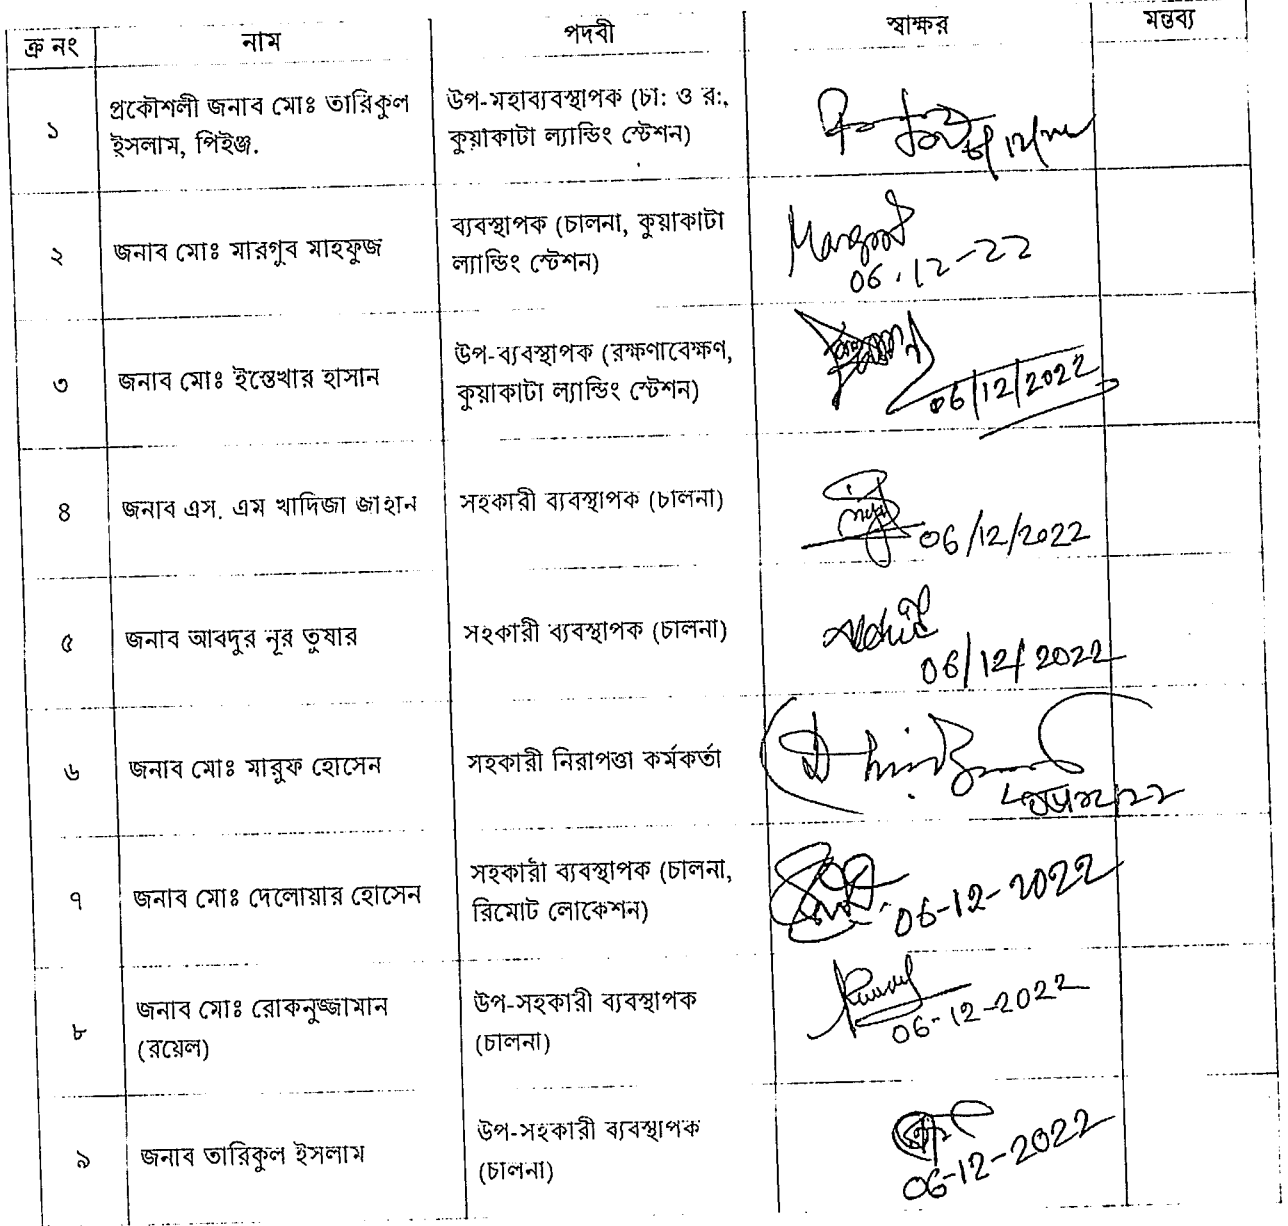 ক্র নং নাম পদবী স্বাক্ষর মন্তব্য
১ প্রকৌশলী জনাব মোঃ তারিকুল উপ-মহাব্যবস্থাপক (চা: ও র:,
ইসলাম, পিইঞ্জ. কুয়াকাটা ল্যান্ডিং স্টেশন)
২ জনাব মোঃ মারগুব মাহফুজ ব্যবস্থাপক (চালনা, কুয়াকাটা
ল্যান্ডিং স্টেশন)
06.12-22
৩ জনাব মোঃ ইন্তেখার হাসান উপ-ব্যবস্থাপক (রক্ষণাবেক্ষণ,
কুয়াকাটা ল্যান্ডিং স্টেশন) 06/12/2022
৪ জনাব এস. এম খাদিজা জাহান সহকারী ব্যবস্থাপক (চালনা)
06/12/2022
৫ জনাব আবদুর নূর তুষার সহকারী ব্যবস্থাপক (চালনা)
06/12/2022
৬ জনাব মোঃ মারুফ হোসেন সহকারী নিরাপত্তা কর্মকর্তা
৭ জনাব মোঃ দেলোয়ার হোসেন সহকারী ব্যবস্থাপক (চালনা,
রিমোট লোকেশন) 06-12-2022
৮ জনাব মোঃ রোকনুজ্জামান উপ-সহকারী ব্যবস্থাপক
(রয়েল) (চালনা) 06-12-2022
৯ জনাব তারিকুল ইসলাম উপ-সহকারী ব্যবস্থাপক
(চালনা) 06-12-2022